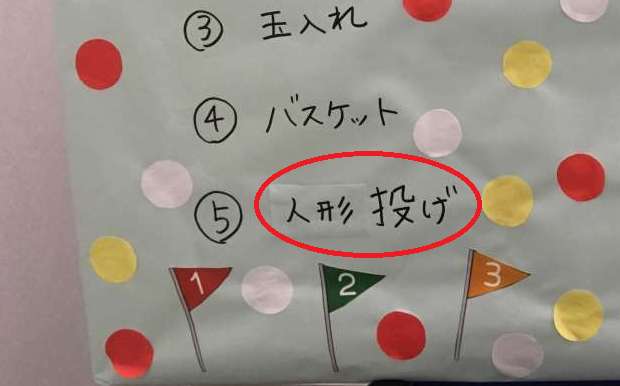 ③ 玉入れ
④ バスケット
⑤ 人形 投げ
1 2 3